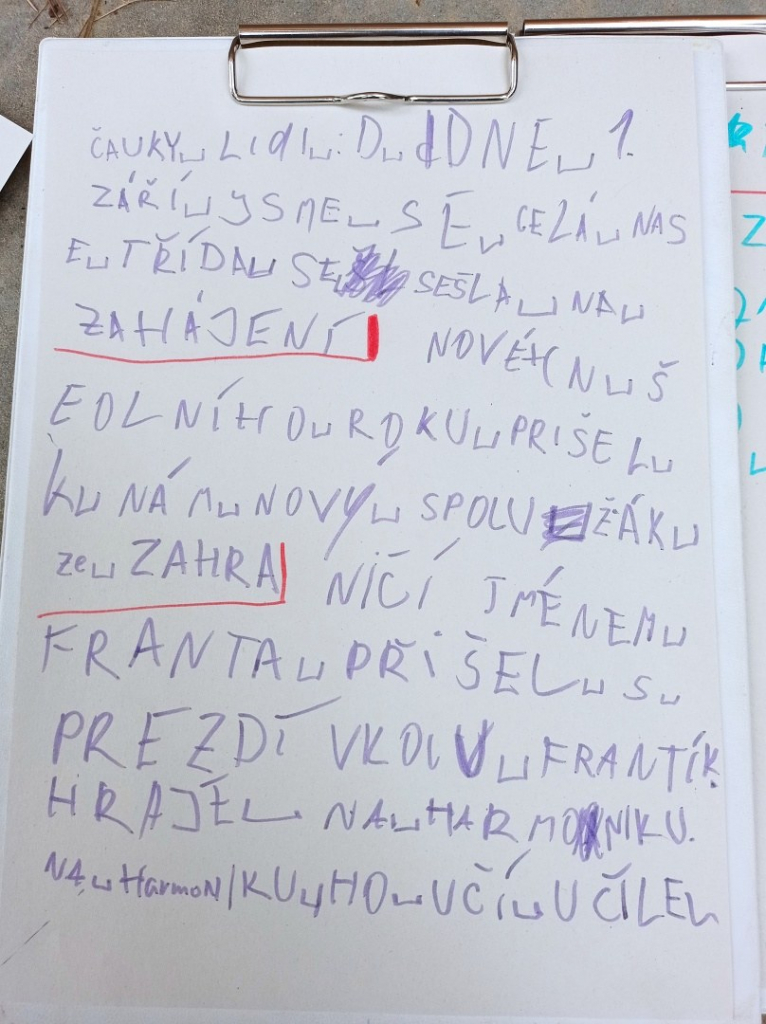 ČAUKY␣LIDI␣:D␣DNE␣1.
ZÁŘÍ␣JSME␣SE␣CELÁ␣NAS
E␣TŘÍDA␣SE␣SEŠLA␣NA␣
ZAHÁJENÍ NOVÉH N␣Š
EOLNÍHO␣ROKU␣PRIŠEL␣
K␣NÁM␣NOVÝ␣SPOLUŽÁK␣
ze␣ZAHRANIČÍ JMÉNEM␣
FRANTA␣PŘIŠEL␣S␣
PREZDÍVKOU␣FRANTÍK
HRAJE␣NA␣HARMONIKU.
NA␣HarmoNIKU␣HO␣UČÍ␣UČÍLE␣